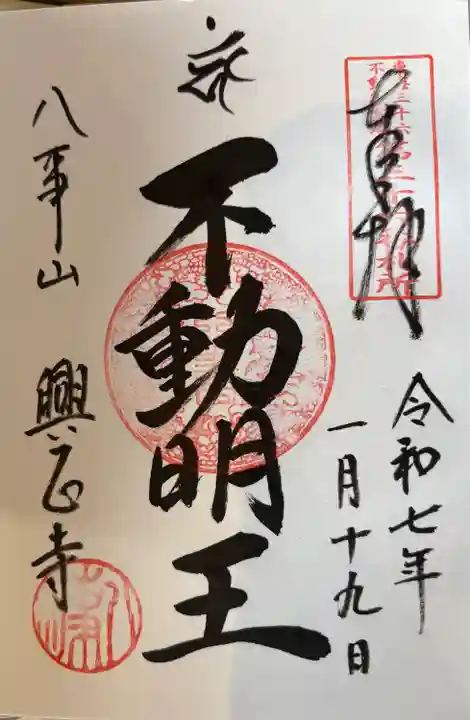 奉拝
令和七年
一月十九日
不動明王
八事山
興正寺